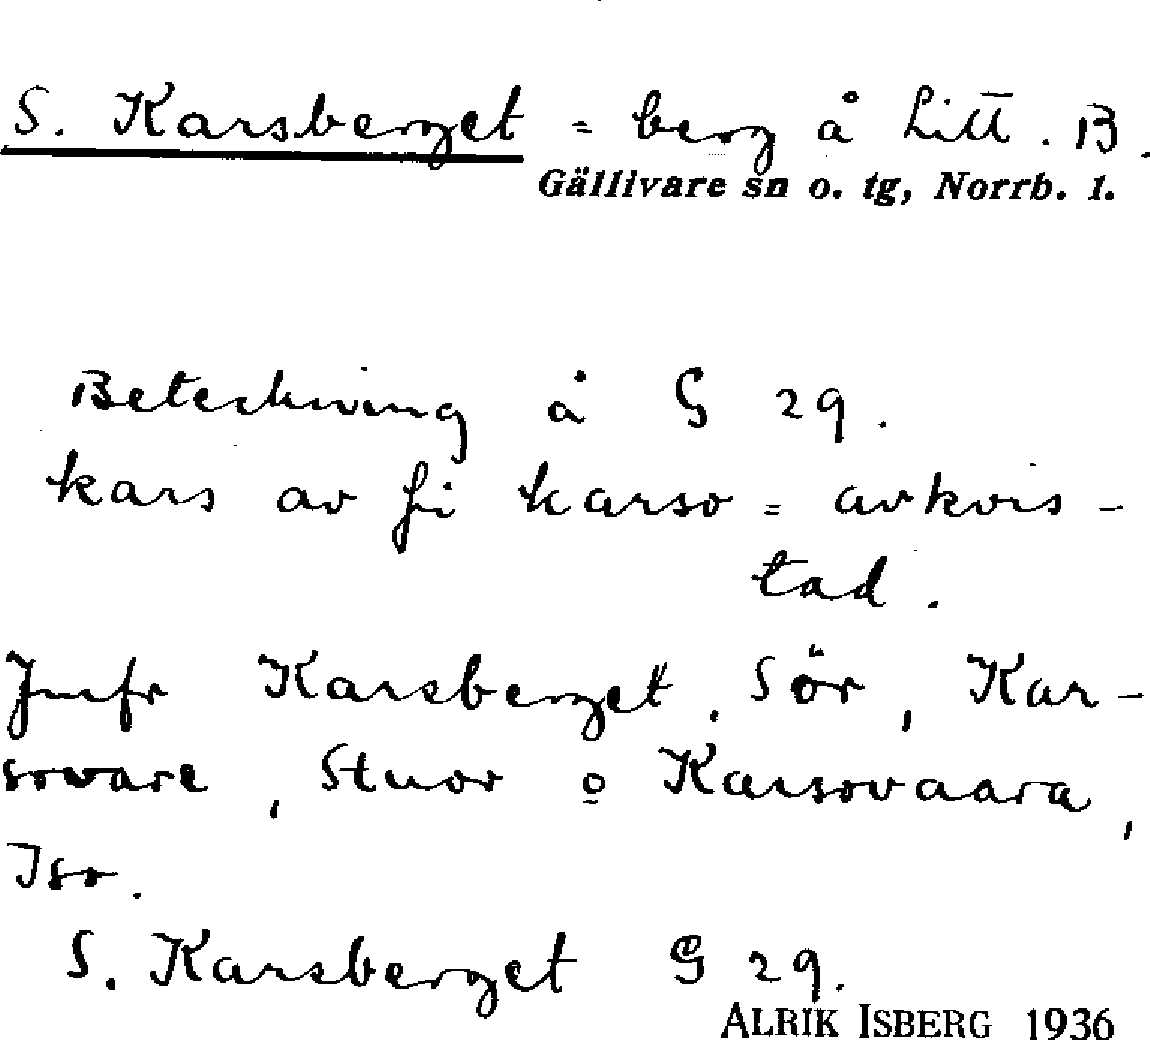 S. Karsberget = berg å Litt. B.
Gällivare sn o. tg, Norrb. l.
Beteckning å G 29.
kars av fi karso = avkvis-
tad.
Jmfr Karsberget, Sör, Kar-
sovare, Stuor o Karsovaara,
Iso.
S. Karsberget G 29.
ALRIK ISBERG 1936